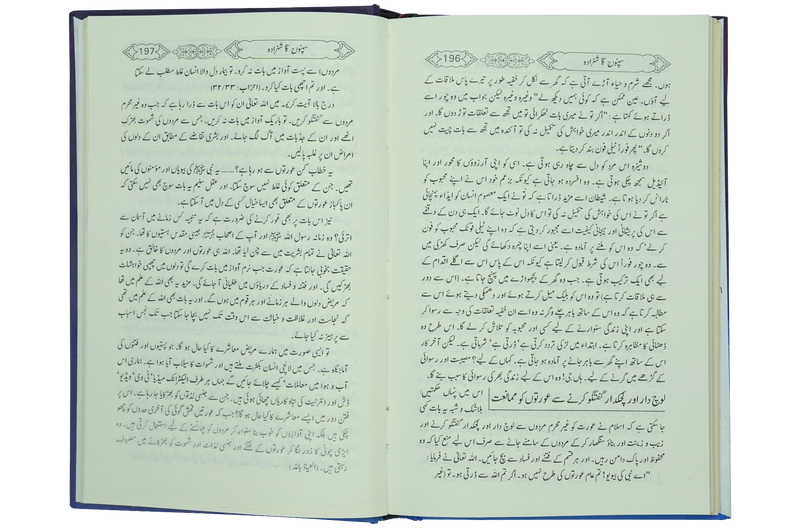 سپنوں کا شہزادہ 196
ہوں۔ مجھے شرم و حیاء آڑے آتی ہے کہ گھر سے نکل کر خفیہ طور پر تیرے پاس ملاقات کے
لیے آؤں۔ عین ممکن ہے کہ کوئی ہمیں دیکھ لے" وغیرہ وغیرہ لیکن جواب میں وہ چور اسے
ڈراتے ہوئے کہتا ہے: "اگر تو نے میری بات ٹھکرائی تو میں تجھ سے تعلقات توڑ دوں گا۔ اور
اگر دو دنوں کے اندر اندر میری خواہش کی تکمیل نہ کی تو آئندہ میں تجھ سے بات چیت نہیں
کروں گا۔" پھر فوراً ٹیلی فون بند کر دیتا ہے۔
دوشیزہ اس مرد کو دل سے چاہ رہی ہوتی ہے۔ اسی کو اپنی آرزوؤں کا محور اور اپنا
آئیڈیل سمجھ چکی ہوتی ہے۔ وہ افسردہ ہو جاتی ہے کیونکہ بزعم خود اس نے اپنے محبوب کو
ناراض کر دیا ہوتا ہے۔ شیطان اسے مزید ڈراتا ہے کہ تو نے ایک معصوم انسان کو ایذاء پہنچائی
ہے اگر تو نے اس کی خواہش کی تکمیل نہ کی تو اس کا دل ٹوٹ جائے گا۔ ایک ہی دن کے وقفے
سے اس کی پریشانی اور ہیجانی کیفیت اسے مجبور کر دیتی ہے کہ وہ اپنے ٹیلی فونک محبوب کو فون
کر لے' کہ وہ اس کو ملنے پر آمادہ ہے۔ یعنی اسے اپنا چہرہ دکھائے گی لیکن صرف کھڑکی میں
سے۔ وہ چور فوراً اس کی شرط قبول کر لیتا ہے کیونکہ اس کے پاس اس سے اگلے اقدام کے
لیے بھی ایک ترکیب ہوتی ہے۔ جب وہ گھر کے پچھواڑے میں پہنچ جاتا ہے۔ (اس سے دور
سے ہی ملاقات کرتا ہے) تو وہ اس کو بلیک میل کرتے ہوئے اور دھمکی دیتے ہوئے اس سے
مطالبہ کرتا ہے کہ وہ اس کے ساتھ باہر چلے وگرنہ وہ اس سے ان خفیہ تعلقات کی وجہ سے رسوا کر
سکتا ہے اور اپنی زندگی سنوارنے کے لیے کسی اور محبوبہ کو تلاش کر لے گا۔ اس طرح وہ
ڈھٹائی کا مظاہرہ کرتا ہے۔ ابتداء میں لڑکی تردد کرتی ہے' ڈرتی ہے' شرماتی ہے۔ لیکن آخر کار
اس کے ساتھ اپنے گھر سے باہر جانے پر آمادہ ہو جاتی ہے۔ کہاں کے لیے؟ مصیبت اور رسوائی
کے گڑھے میں گرنے کے لیے۔ ہاں جی! وہ اس کے لیے زندگی بھر کی رسوائی کا سبب بنے گا۔
لوچ دار اور لچکدار گفتگو کرنے سے عورتوں کو ممانعت
اس میں پنہاں حکمتیں:
بلاشک و شبہ یہ بات کہی
جا سکتی ہے کہ اسلام نے عورت کو غیر محرم مردوں سے لوچ دار اور لچکدار گفتگو کرنے اور
زیب و زینت اور بناؤ سنگھار کر کے مردوں کے سامنے جانے سے صرف اس لیے منع کیا کہ وہ
محفوظ اور پاک دامن رہیں۔ اور ہر قسم کے فتنے اور فساد سے بچ جائیں۔ اللہ تعالی نے فرمایا:
"اے نبی کی بیویو! تم عام عورتوں کی طرح نہیں ہو۔ اگر تم اللہ سے ڈرتی ہو۔ تو (غیر
سپنوں کا شہزادہ 197
مردوں) سے پست آواز میں بات نہ کرو۔ تو بیمار دل والا انسان غلط مطلب لے سکتا
ہے۔ اور تم اچھی بات کیا کرو۔ (احزاب: ۳۲/۳۳)
درج بالا آیت کریمہ میں اللہ تعالی ان کو اس بات سے ڈرا رہا ہے کہ جب وہ غیر محرم
مردوں سے گفتگو کریں۔ تو باریک آواز میں بات نہ کریں۔ جس سے مردوں کی شہوت بھڑک
اٹھے اور ان کے جذبات میں آگ لگ جائے۔ اور بشری تقاضے کے مطابق ان کے دلوں کی
امراض ان پر غلبہ پالیں۔
یہ خطاب کن عورتوں سے ہو رہا ہے؟...... یہ نبی ﷺ کی بیویاں اور مومنوں کی مائیں
تھیں۔ جن کے متعلق کوئی غلط نہیں سوچ سکتا۔ اور عقل سلیم یہ بات سوچ بھی نہیں سکتی کہ
ان پاکباز عورتوں کے متعلق بھی ایسا خیال کسی کے دل میں آ سکتا ہے۔
نیز اس بات پر بھی غور کرنے کی ضرورت ہے کہ یہ تنبیہ کس زمانے میں آسمان سے
اتری؟ وہ زمانہ رسول اللہ ﷺ اور آپ کے اصحاب جیسی مقدس ہستیوں کا تھا۔ جن کو
اللہ تعالی نے تمام بشریت میں سے چن لیا تھا۔ اللہ ہی عورتوں اور مردوں کا خالق ہے۔ وہ یہ
حقیقت بخوبی جانتا ہے کہ عورت جب نرم آواز میں بات کرے گی تو دلوں میں چھپی خواہشات
بھڑکیں گی۔ اور فتنہ و فساد کے دریاؤں میں طغیانی آ جائے گی۔ مزید یہ بھی اللہ کے علم میں تھا
کہ مریض دلوں والے ہر زمانے اور ہر قوم میں ہوں گے۔ اور یہ بات بھی اللہ کے علم میں تھی
کہ نجاست اور غلاظت و خباثت سے اس وقت تک نہیں بچا جا سکتا جب تک نجس اسباب
سے پرہیز نہ کیا جائے۔
تو ایسی صورت میں ہمارے مریض معاشرے کا کیا حال ہو گا۔ جو پستیوں اور فتنوں کی
آماجگاہ ہے۔ جس میں لالچی انسان بکثرت ملتے ہیں اور شہوات کا سیلاب آیا ہوا ہے۔ ہماری اس
آب و ہوا میں معاملات' کیسے چلائے جائیں گے جہاں ہر طرف الیکٹرانک میڈیا' ٹی وی' ویڈیو'
ڈش اور انٹرنیٹ کی تباہ کاریاں چھائی ہوئی ہیں۔ جن سے جنسی لذتوں کو بھڑکایا جا رہا ہے۔ پر
فتن دور میں ایسے معاشرے کا کیا حال ہو گا؟ جب کہ عورتیں فحش گوئی کی آخری حدوں کو چھو
چکی ہیں بلکہ اپنی آوازوں کو خوب بنا سنوار کر مردوں کو پھانسنے کے لیے استعمال کرتی ہیں۔ وہ
ایڑی چوٹی کا زور لگا کر عورتوں کے فتنے اور جنسی لذات اور شہوت کو بھڑکانے میں مصروف
رہتی ہیں۔ (العیاذ باللہ)